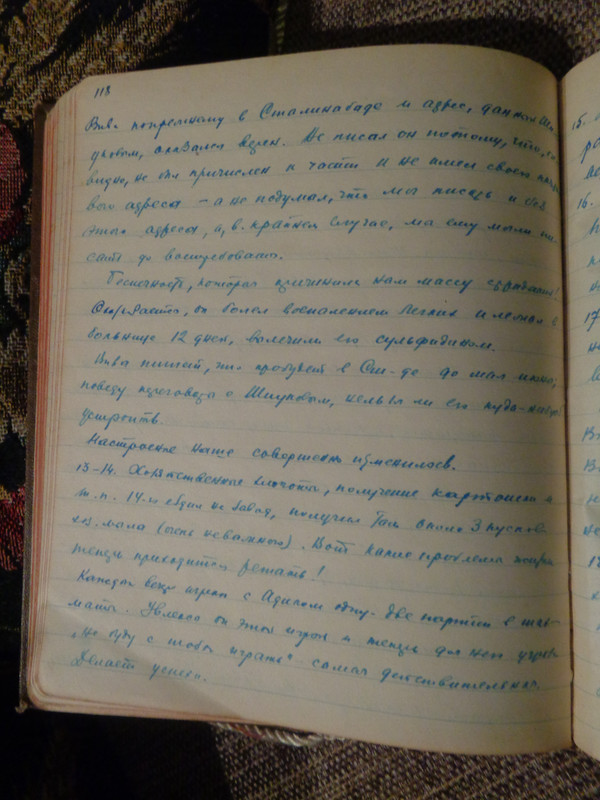 118
Вива попрежнему в Сталинабаде и адрес, данный Шп
овом, оказался верен. Не писал он потому, что, оч
видно, не был причислен к части и не имел своего
вого адреса – а не подумал, что мы писать и без
этого адреса, а, в крайнем случае, мы ему могли пи-
сать до востребования.
Беспечность, которая причинила нам массу страданий!
Оказывается, он болел воспалением легких и лежал в
больнице 12 дней, вылечили его сульфидином.
Вива пишет, что пробудет в Ст-де до мая м-ца;
поведу переговоры с Шпуновым, нельзя ли его куда-нибудь
устроить.
Настроение наше совершенно изменилось.
13-14. Хозяйственные хлопоты, получение картошки и
т.п. 14-го ездил на завод, получил там около 3 кусков
хоз. мыла (очень неважного). Вот какие проблемы
теперь приходится решать!
Каждый вечер играем с Адиком одну-две партии в шах-
маты. Увлекся он этой игрой и теперь для него угроза
„Не буду с тобой играть" – самая действительная.
Делает успехи.
15.
16.
17